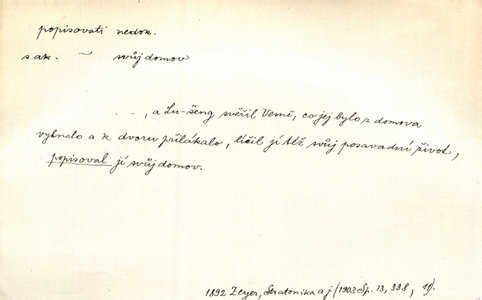 popisovati nedok.
s ak. ~ svůj domov
. . ., a Lu-šeng svěřil Verně, co jej bylo z domova
vyhnalo a k dvoru přilákalo, líčil jí též svůj posavadní život,
popisoval jí svůj domov.
1892 Zeyer, Stratonika a j (1903 Sp. 13, 338,